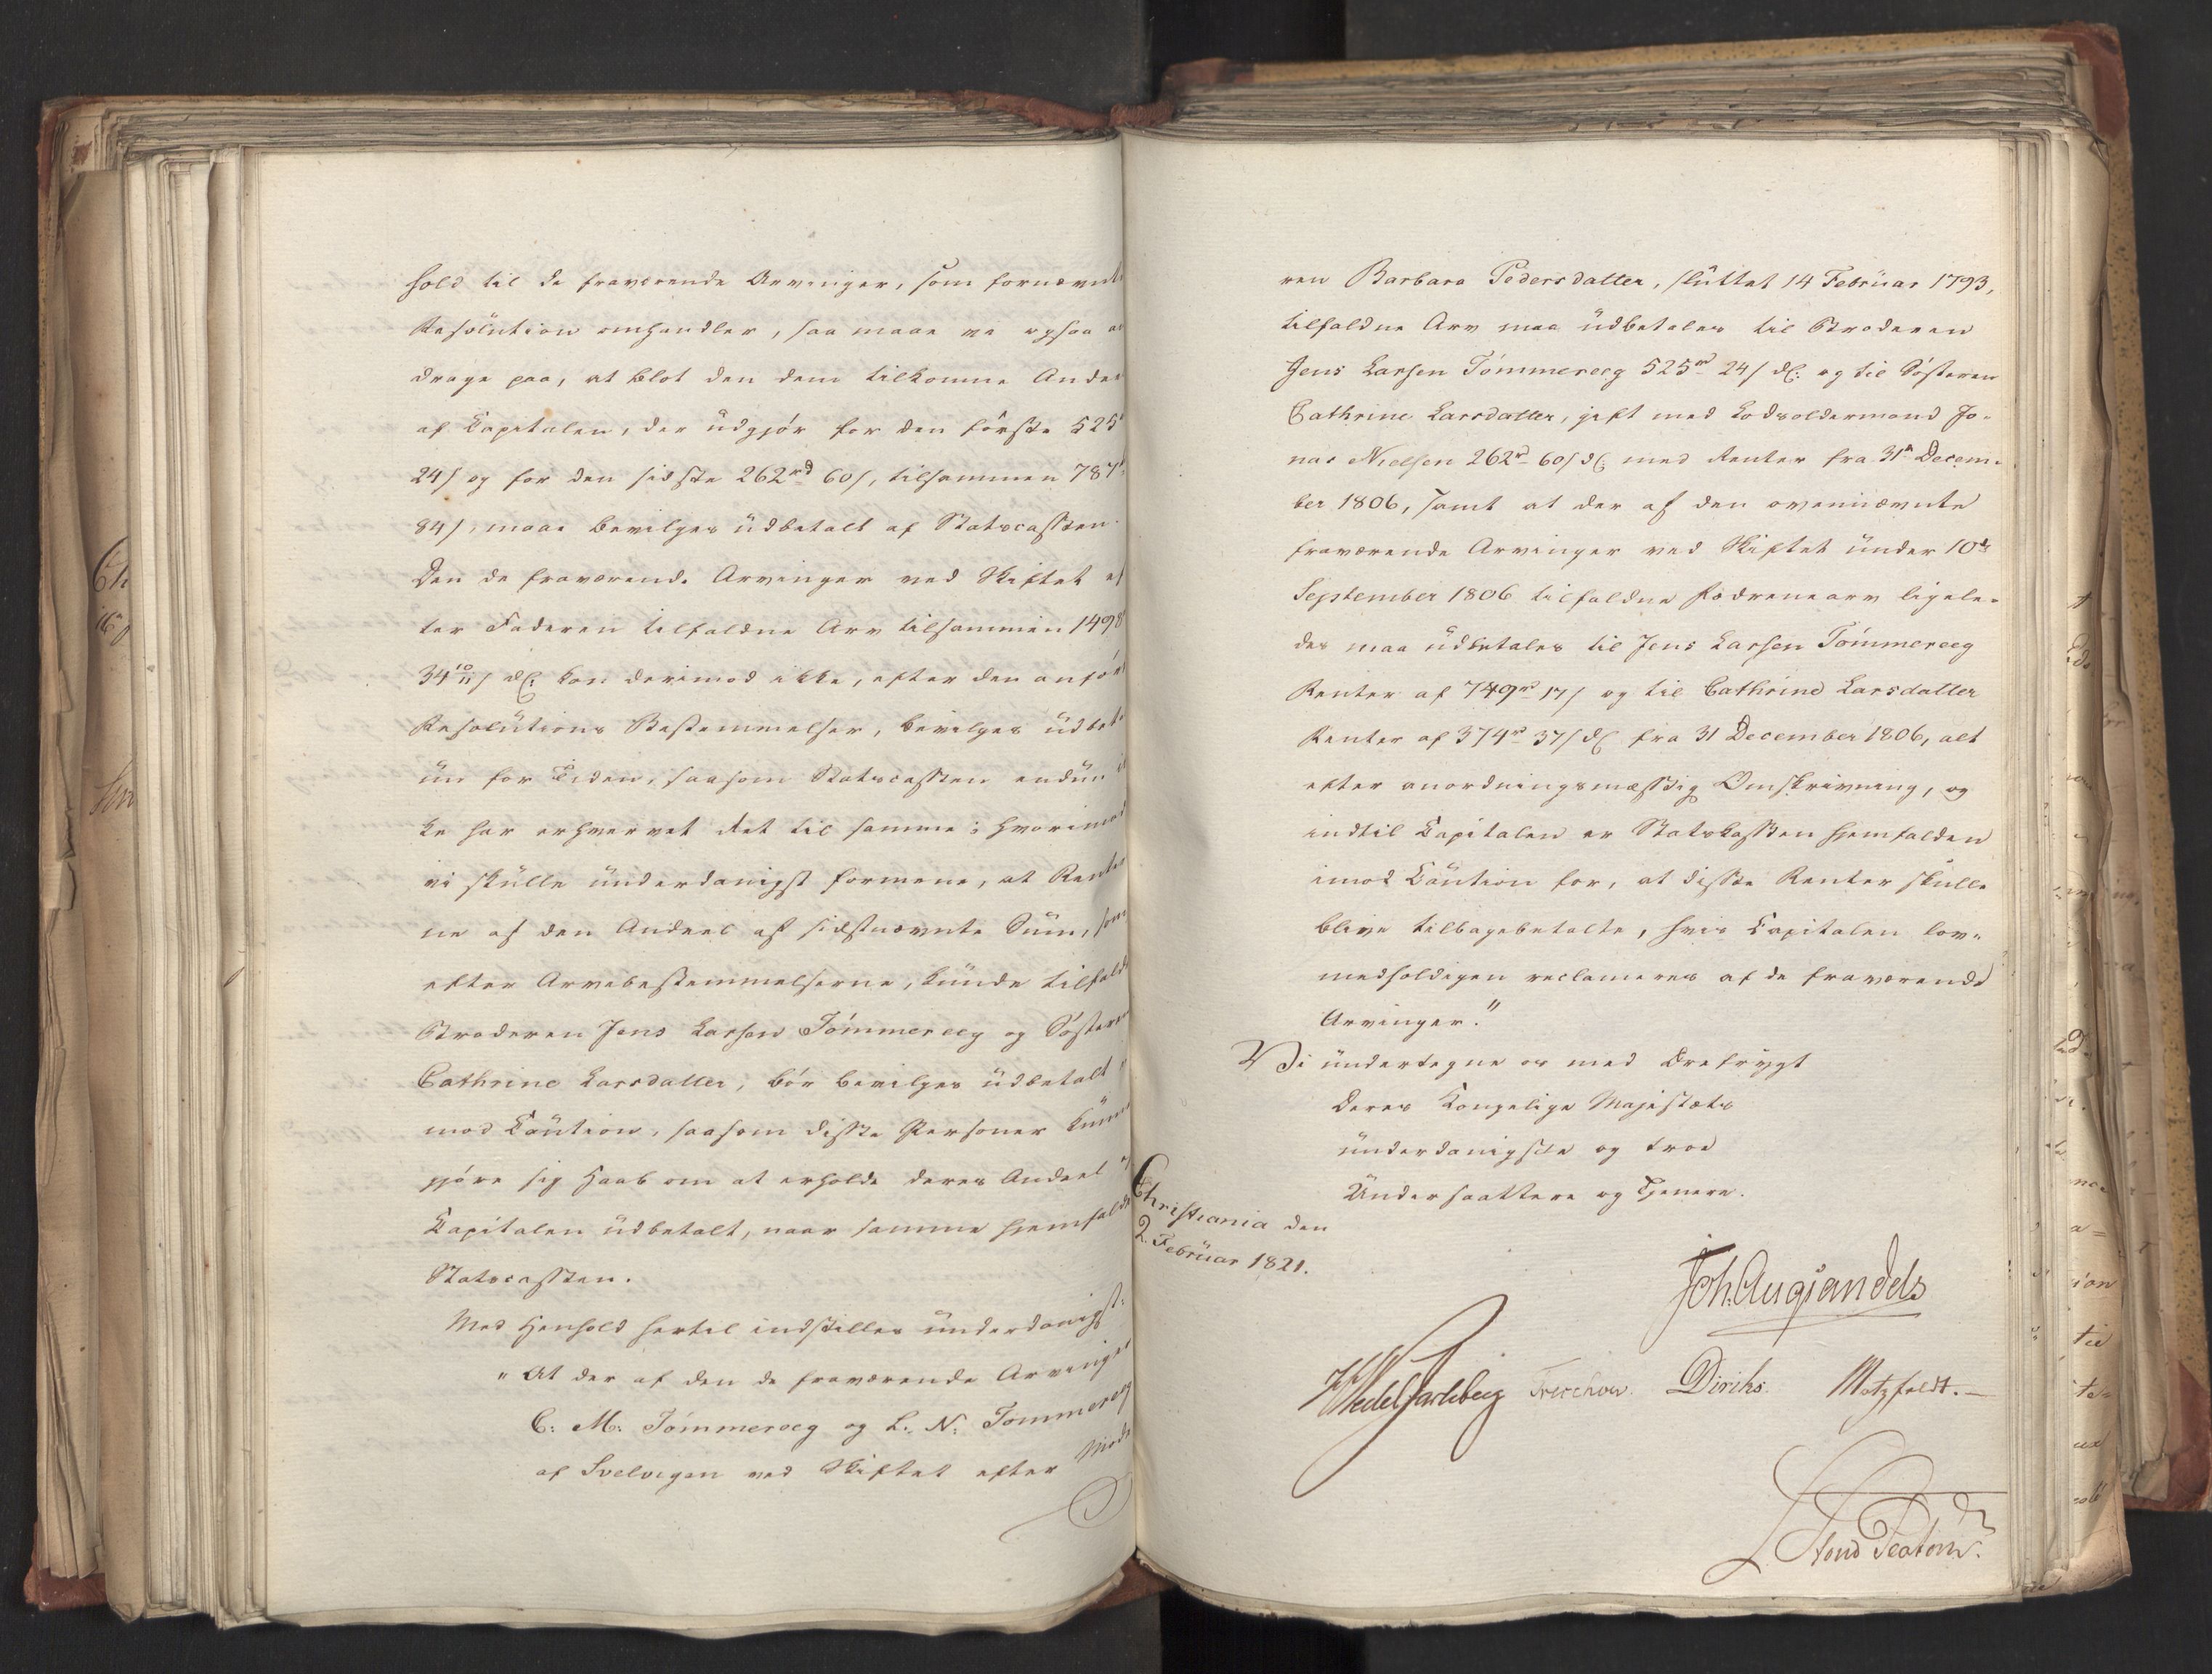 hold til de fraværende Arvinger, som fornævnte
Resolution omhandler, saa maae vi ogsaa an
drage paa, at blot den dem tilkomne Andee
af Capitalen, der udgjør for den første 525
24 s og for den sidste 262 rd 60 s, tilsammen 787
84 s, maae bevilges udbetalt af Statscassen.
Den de fraværende Arvinger ved Skiftet ef
ter Faderen tilfaldne Arv tilsammen 1498
34 10/11 s dC. kan derimod ikke, efter den anfør
Resolutions Bestemmelser, bevilges udbet
nu for Tiden, saasom Statscassen endnu ik
ke har erhvervet Ret til samme; hvorimod
vi skulle underdanigst formene, at Rente
ne af den Andeel af sidstnævnte Sum, som
efter Arvebestemmelserne, kunde tilfalde
Broderen Jens Larsen Tømmeraeg og Søsteren
Cathrine Larsdatter, bør bevilges udbetalt
mod Caution, saasom disse Personer kunne
gjøre sig Haab om at erholde deres Andeel af
Capitalen udbetalt, naar samme hjemfalder
Statscassen.
Med Henhold hertil indstilles underdanigst:
" At der af den de fraværende Arvinger
C: M: Tømmeraeg og L. N: Tømmeraeg
af Svelvigen ved Skiftet efter Mode
ren Barbara Pedersdatter, sluttet 14 Februar 1793,
tilfaldne Arv maa udbetales til Broderen
Jens Larsen Tømmeraeg 525 rd 24 s dC: og til Søsteren
Cathrine Larsdatter, gift med Lodsoldermand Jo-
nas Nielsen 262 rd 60 s dC: med Renter fra 31te Decem-
ber 1806, samt at der af den ovennævnte
fraværende Arvinger ved Skiftet under 10de
September 1806 tilfaldne Fædrenearv ligele-
des maa udbetales til Jens Larsen Tømmeraeg
Renter af 749 rd 17 s og til Cathrine Larsdatter
Renter af 374 rd 37 s dC fra 31 December 1806, alt
efter anordningsmæssig Omskrivning, og
indtil Capitalen er Statskassen hjemfalden
imod Caution for, at disse Renter skulle
blive tilbagebetalte, hvis Capitalen lov-
medholdigen reclameres af de fraværende
Arvinger."
Vi undertegne os med Ærefrygt
Deres Kongelige Majestæts
underdanigste og troe
Undersaattere og Tjenere.
Christiania den
2. Februar 1821.
Joh. Aug. Sandels
HWedel Jarlsberg Treschow. Diriks. Motzfeldt.